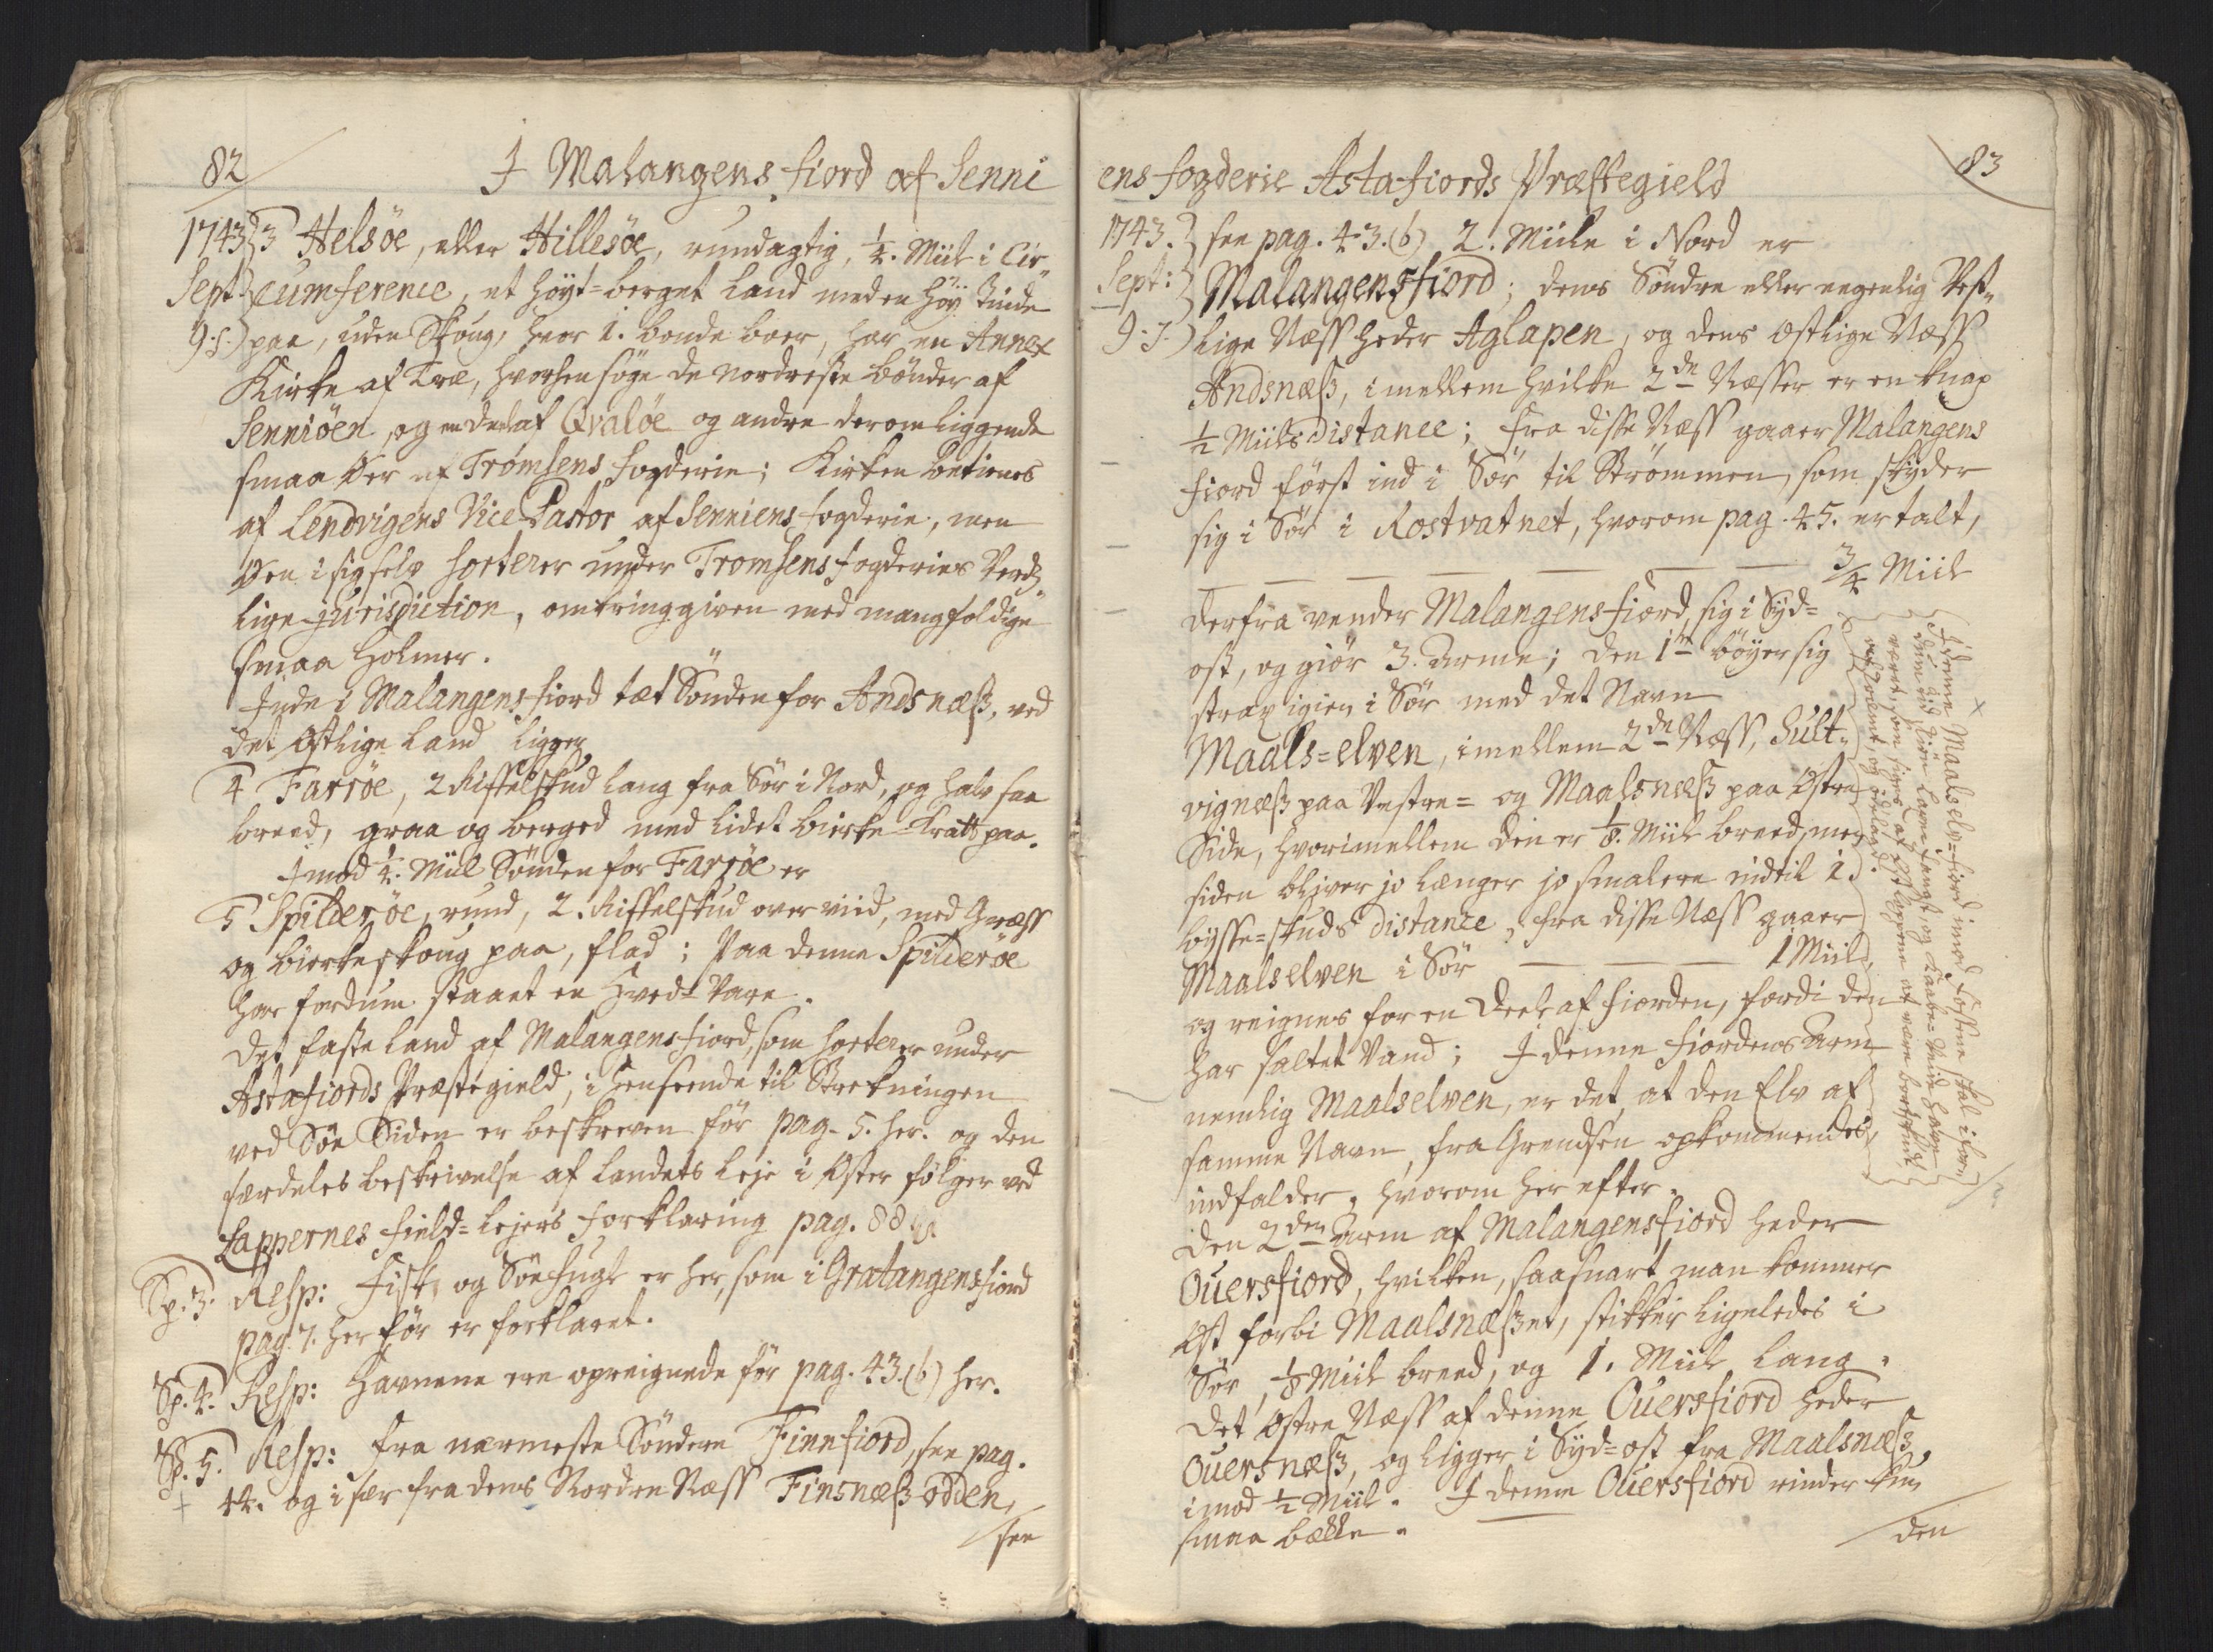 82
I Malangens fiord af Senni
1743 3 Helsöe, eller Hillesöe, rundagtig, 1/4. Miil i Cir„
Sept: cumference, et höyt=berget Land med en höy Tinde
9. s. paa, uden Skoug, hvor 1. bonde boer, har en Annex
Kirke af Træ, hvorhen söge de nordreste bönder af
Senniöen, og en Deel af Qvalöe og andre derom liggende
smaa Øer af Tromsens fogderie; Kirken betienes
af Lenvigens Vice Pastor af Senniens fogderie, men
Øen i sig selv sorterer under Tromsens fogderies Verds„
lige Jurisdiction, omkringgiven med mangfoldige
smaa Holmer.
Inde i Malangens fiord tæt Sönden for Andsnæß, ved
det Østlige Land ligger
4 Farröe, 2 Riffelskud lang fra Sör i Nord, og halv saa
breed, graa og berged med lidet birke=Kratt paa.
Imod 1/4. Miil Sönden for Farröe er
5 Spilderöe, rund, 2. Riffelskud over viid, med Græss
og birkeskoug paa, flad; Paa denne Spilderöe
har fordum staaet en Hved=Vare.
Det faste Land af Malangens fiord, som sorterer under
Astafiords Præstegield, i Henseende til Strekningen
ved Söe Siden er beskreven för pag. 5. her. og den
særdeles beskrivelse af Landets Leje i Øster fölger ved
Lappernes field=Lejers forklaring pag. 88
Sp. 3. Resp: Fisk, og Söefugl er her, som i Gratangensfiord
pag 7. her för er forklaret.
Sp. 4. Resp: Havnene ere opreignede för pag. 43.(b) her.
Sp. 5. Resp: fra nærmeste Söndere Finnfiord, see pag.
44. og i sær fra dens Nordre Næss Finsnæß odden,
see
83
ens fogderie Astafiords Præstegield
1743. see pag. 43.(b) 2. Miile i Nord er
Sept: Malangensfiord; dens Söndre eller egenlig Vest„
9. s. lige Næss heder Aglapen, og dens østlige Næss
Andsnæß, imellem hvilke 2de Næsser er en knap
1/2 Miils distance; fra disse Næss gaaer Malangens
fiord först ind i Sör til Strömmen, som skyder
sig i Sör i Rostvatnet, hvorom pag. 45. er talt,
3/4 Miil
derfra vender Malangensfiord sig i Syd=
ost, og giör 3. Arme; den 1te böyer sig
strax igien i Sör med det Navn
Maals=elven, imellem 2de Næss, Sult„
vignæß paa Vestre= og Maalsnæß paa Østre
Side, hvorimellem den er 1/8. Miil breed, men
siden bliver jo længer jo smalere indtil 1.
bysse=skuds distance, fra disse Næss gaaer
Maalselven i Sör 1 Miil
og reignes for en Deel af fiorden, fordi den
har saltet Vand; I denne fiordens Arm
nemlig Maalselven, er det, at den Elv af
samme Navn, fra Grendsen opkommendes,
indfalder, hvorom her efter.
Den 2den Arm af Malangensfiord heder
Ouersfiord, hvilken, saasnart man kommer
Øst forbi Maalsnæßet, stikker ligeledes i
Sör, 1/8 Miil breed, og 1. Miil lang.
Det Østre Næss af denne Ouersfiord heder
Ouersnæß, og ligger i Syd=ost fra Maalsnæß,
imod 1/2 Miil. I denne Ouersfiord rinder kun
smaa bække.
den
x I denne Maalselv=fiord imod fossene skal i for„
dum tiid
været, som siges af